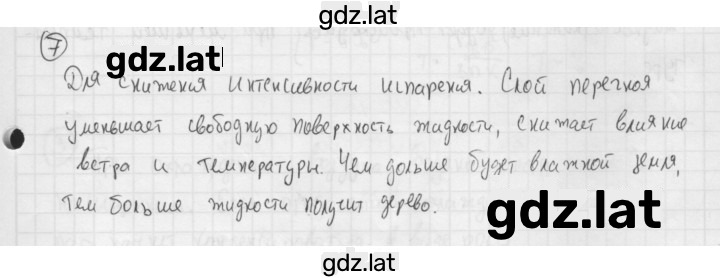 gdz.lat
7
gdz.lat
Для снижения интенсивности испарения. Слой перегноя
уменьшает свободную поверхность жидкости, снижает влияние
ветра и температуры. Чем дольше будет влажной земля,
тем больше жидкости получит дерево.
gdz.lat
gdz.lat